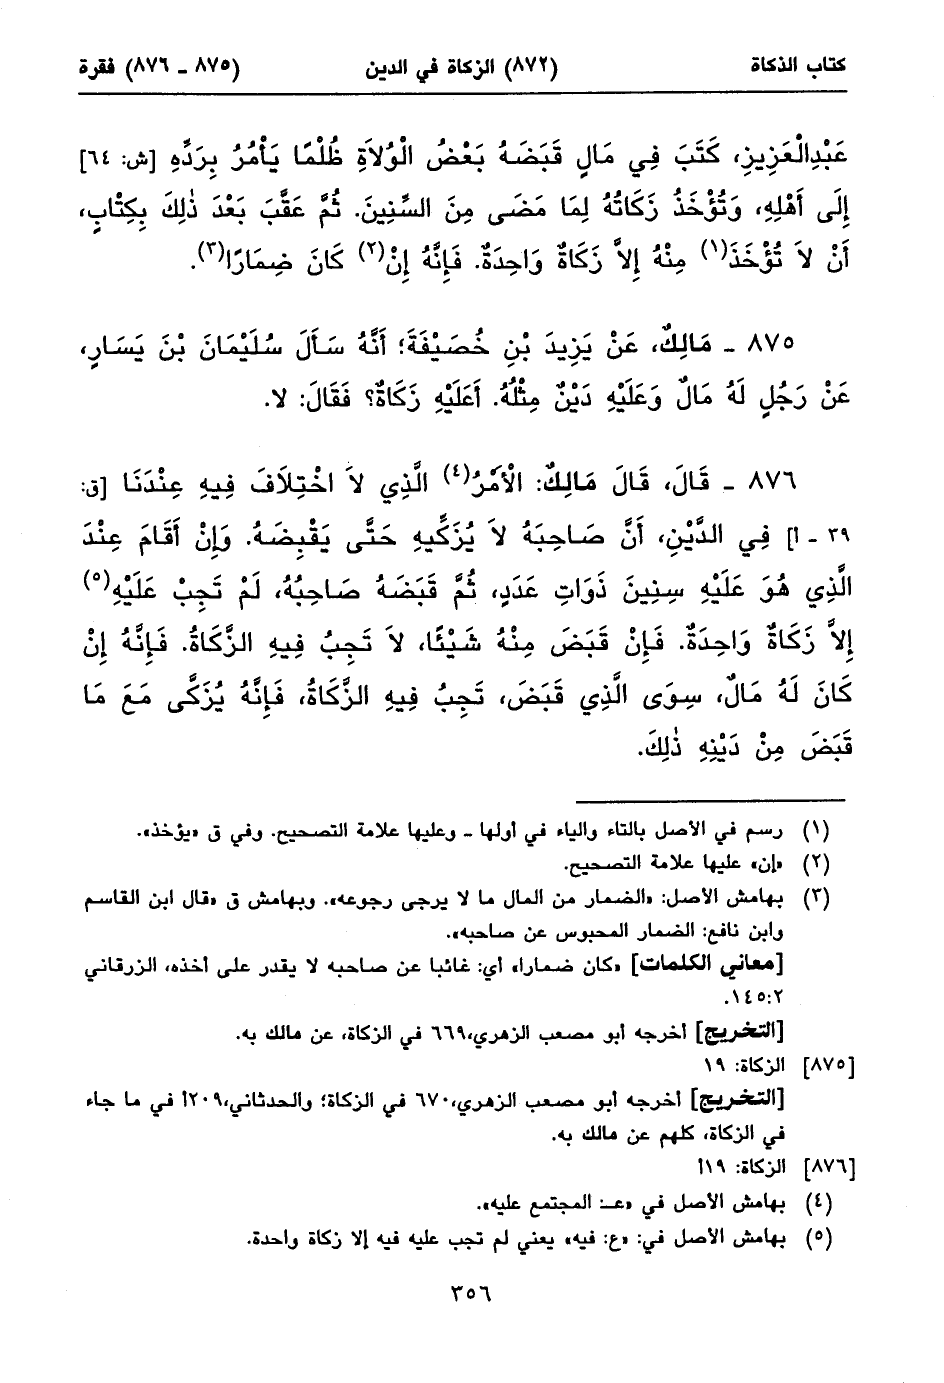 كتاب الذكاة (٨٧٢) الزكاة في الدين (٨٧٥ ـ ٨٧٦) فقرة
عَبْدِالْعَزِيزِ، كَتَبَ فِي مَالٍ قَبَضَهُ بَعْضُ الْوُلاَةِ ظُلْمًا يَأْمُرُ بِرَدِّهِ [ش: ٦٤]
إِلَى أَهْلِهِ، وَتُؤْخَذُ زَكَاتُهُ لِمَا مَضَى مِنَ السِّنِينَ. ثُمَّ عَقَّبَ بَعْدَ ذٰلِكَ بِكِتَابٍ،
أَنْ لاَ تُؤْخَذَ(١) مِنْهُ إِلاَّ زَكَاةٌ وَاحِدَةٌ. فَإِنَّهُ إِنْ(٢) كَانَ ضِمَارًا(٣).
٨٧٥ ـ مَالِكٌ، عَنْ يَزِيدَ بْنِ خُصَيْفَةَ؛ أَنَّهُ سَأَلَ سُلَيْمَانَ بْنَ يَسَارٍ،
عَنْ رَجُلٍ لَهُ مَالٌ وَعَلَيْهِ دَيْنٌ مِثْلُهُ. أَعَلَيْهِ زَكَاةٌ؟ فَقَالَ: لا.
٨٧٦ ـ قَالَ، قَالَ مَالِكٌ: الْأَمْرُ(٤) الَّذِي لاَ اخْتِلاَفَ فِيهِ عِنْدَنَا [ق:
٣٩ ـ أ] فِي الدَّيْنِ، أَنَّ صَاحِبَهُ لاَ يُزَكِّيهِ حَتَّى يَقْبِضَهُ. وَإِنْ أَقَامَ عِنْدَ
الَّذِي هُوَ عَلَيْهِ سِنِينَ ذَوَاتِ عَدَدٍ، ثُمَّ قَبَضَهُ صَاحِبُهُ، لَمْ تَجِبْ عَلَيْهِ(٥)
إِلاَّ زَكَاةٌ وَاحِدَةٌ. فَإِنْ قَبَضَ مِنْهُ شَيْئًا، لاَ تَجِبُ فِيهِ الزَّكَاةُ. فَإِنَّهُ إِنْ
كَانَ لَهُ مَالٌ، سِوَى الَّذِي قَبَضَ، تَجِبُ فِيهِ الزَّكَاةُ، فَإِنَّهُ يُزَكَّى مَعَ مَا
قَبَضَ مِنْ دَيْنِهِ ذٰلِكَ.
(١) رسم في الأصل بالتاء والياء في أولها ـ وعليها علامة التصحيح. وفي ق «يؤخذ».
(٢) «إن» عليها علامة التصحيح.
(٣) بهامش الأصل: «الضمار من المال ما لا يرجى رجوعه». وبهامش ق «قال ابن القاسم
وابن نافع: الضمار المحبوس عن صاحبه».
[معاني الكلمات] «كان ضمارا» أي: غائبا عن صاحبه لا يقدر على أخذه، الزرقاني
١٤٥:٢.
[التخريج] أخرجه أبو مصعب الزهري،٦٦٩ في الزكاة، عن مالك به.
[٨٧٥] الزكاة: ١٩
[التخريج] أخرجه أبو مصعب الزهري،٦٧٠ في الزكاة؛ والحدثاني،٢٠٩أ في ما جاء
في الزكاة، كلهم عن مالك به.
[٨٧٦] الزكاة: ١٩أ
(٤) بهامش الأصل في «عـ: المجتمع عليه».
(٥) بهامش الأصل في: «ع: فيه» يعني لم تجب عليه فيه إلا زكاة واحدة.
٣٥٦